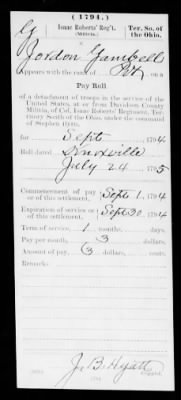 (1794.)
G | Isaac Roberts' Reg't. (Militia.) | Ter. So. of the Ohio.
Jordon Gambell
Appears with the rank of Pvt. on a
Pay Roll
of a detachment of troops in the service of the
United States, at or from Davidson County
Militia, of Col. Isaac Roberts' Regiment, Ter-
ritory South of the Ohio, under the command
of Stephen
for Sept 1794
Roll dated Knoxville
July 24 1795
Commencement of pay or of this settlement. Sept. 1 1794
Expiration of service or of this settlement. Sept 30 1794
Term of service, 1 months, days.
Pay per month, 3 dollars.
Amount of pay, 3 dolls. cents.
Remarks:
J. B. Hyatt
Copyist.